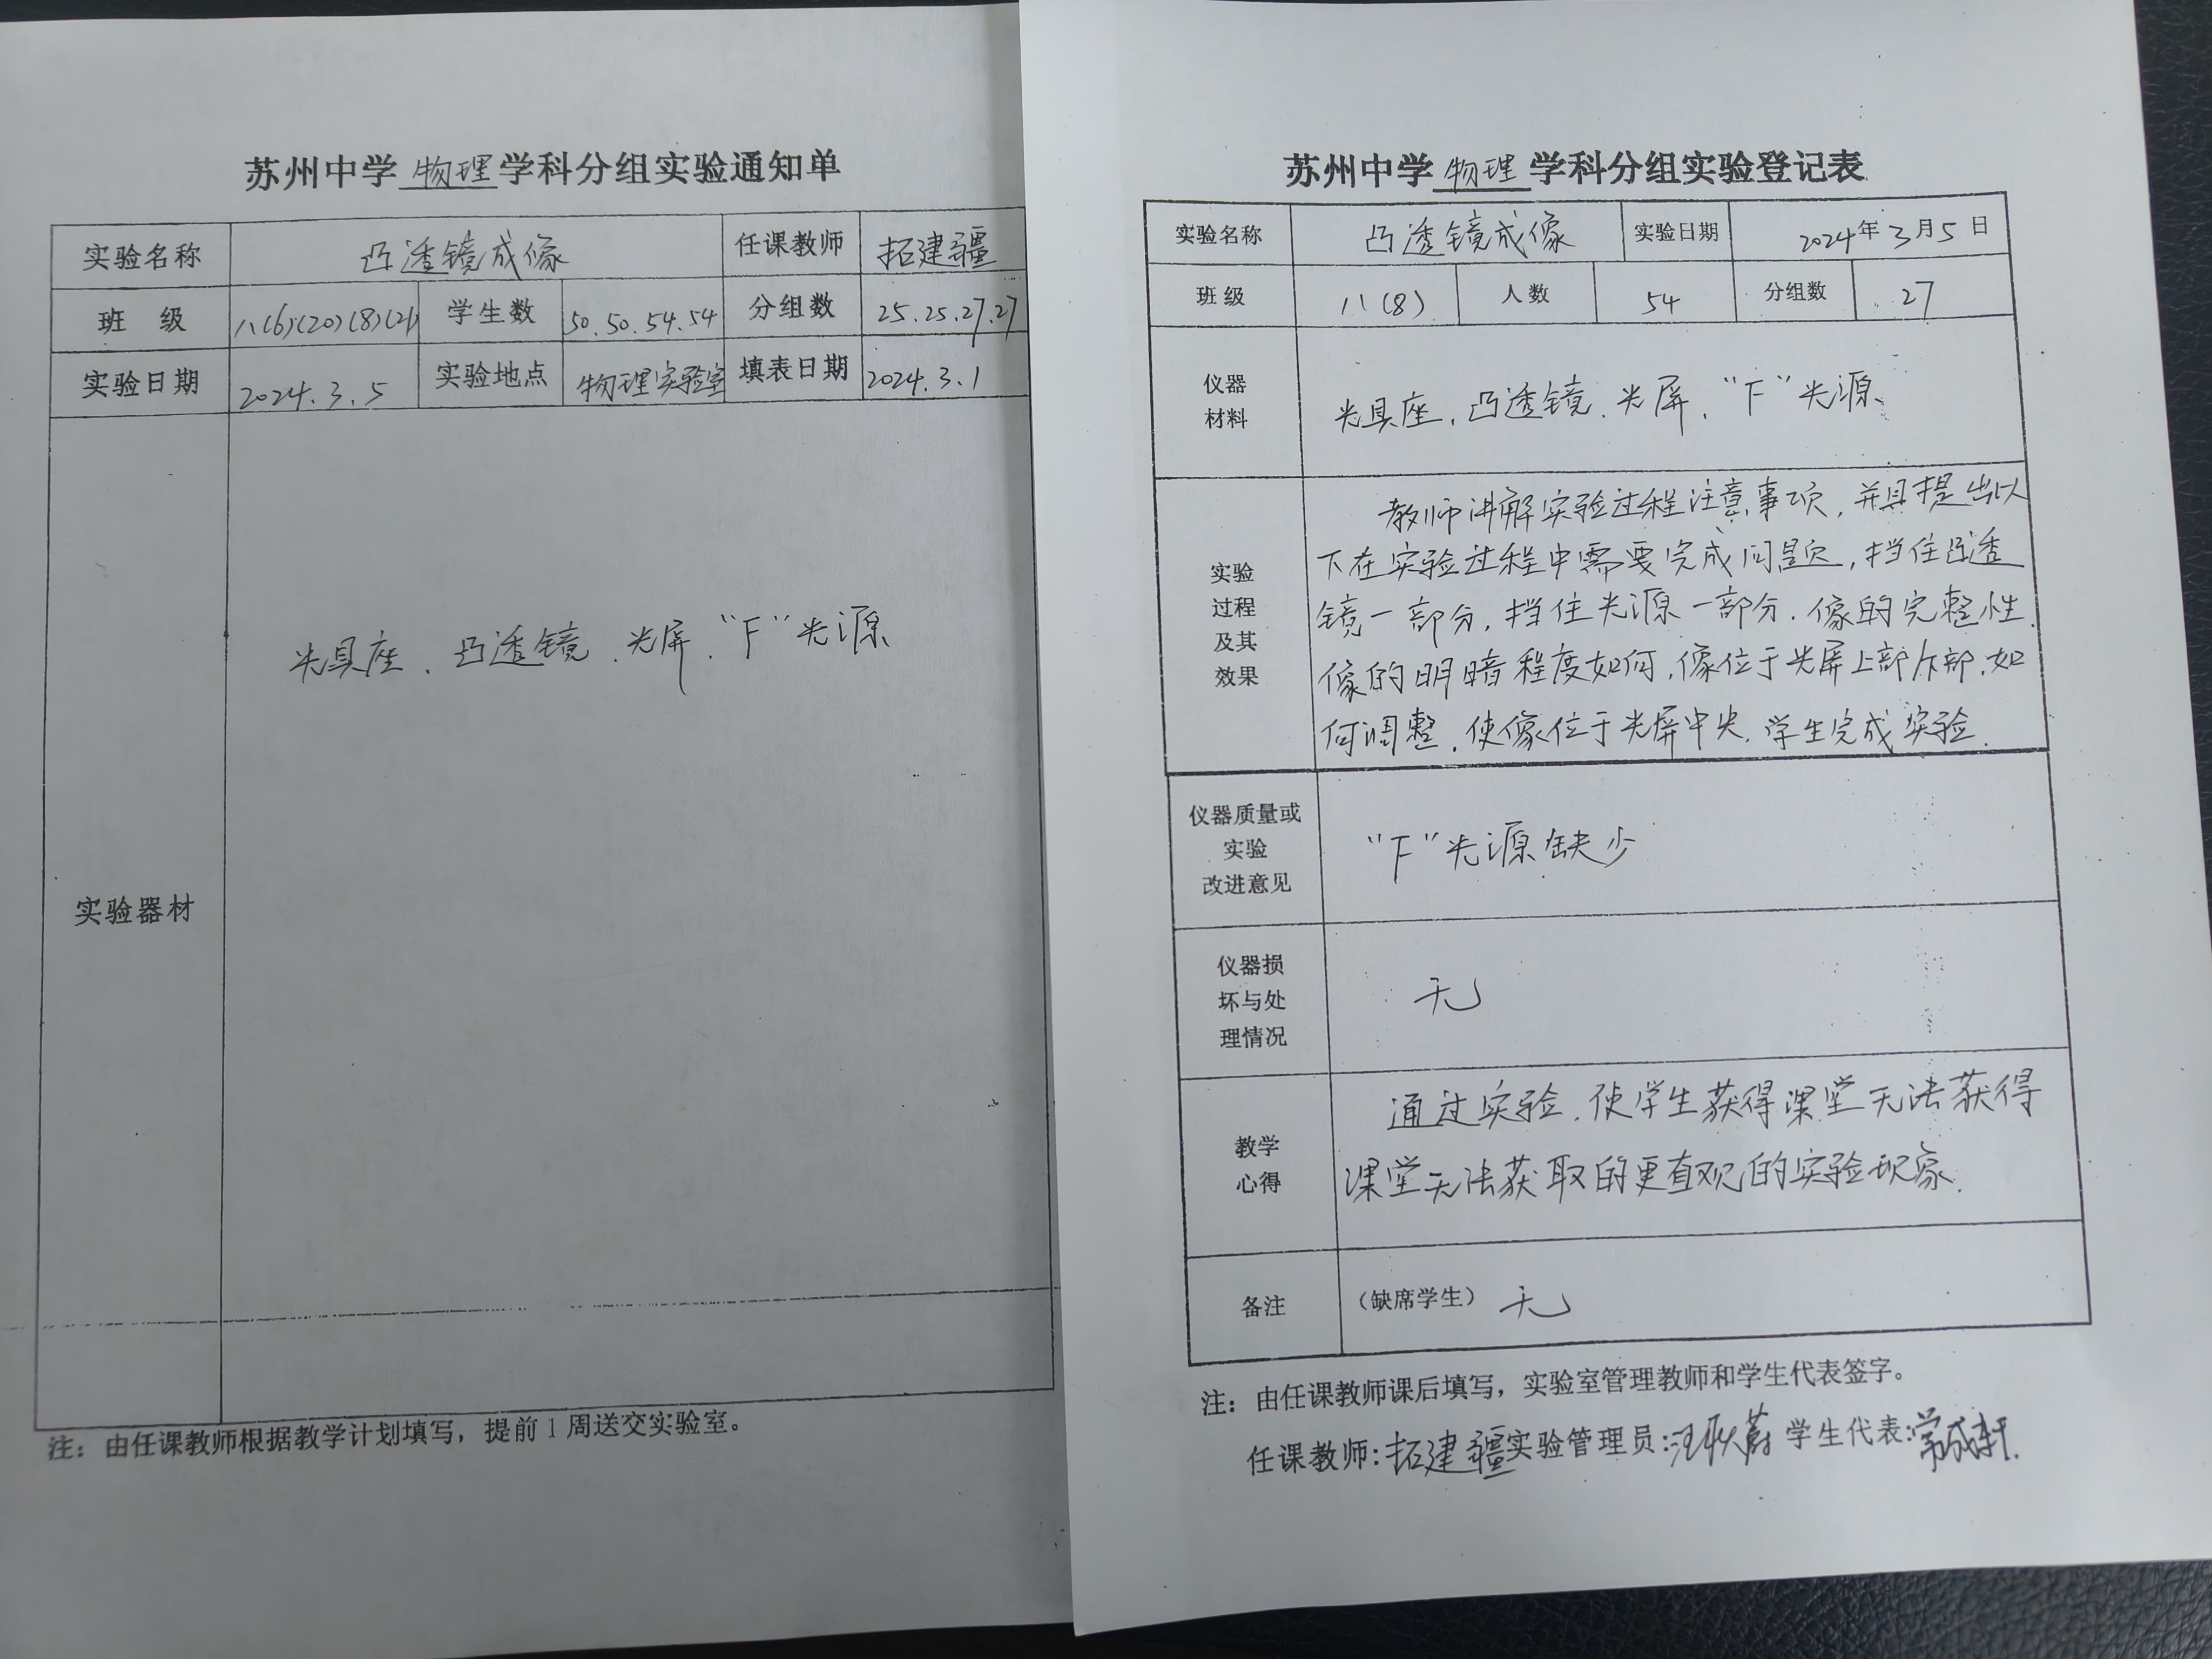 苏州中学 物理 学科分组实验通知单
实验名称 凸透镜成像 任课教师 拓建疆
班 级 八(6)(20)(8)(21) 学生数 50.50.54.54 分组数 25.25.27.27
实验日期 2024.3.5 实验地点 物理实验室 填表日期 2024.3.1
实验器材 光具座、凸透镜、光屏、“F”光源
注：由任课教师根据教学计划填写，提前1周送交实验室。
苏州中学 物理 学科分组实验登记表
实验名称 凸透镜成像 实验日期 2024年3月5日
班级 八(8) 人数 54 分组数 27
仪器
材料
光具座、凸透镜、光屏、“F”光源
实验
过程
及其
效果
教师讲解实验过程注意事项，并且提出以
下在实验过程中需要完成问题，挡住凸透
镜一部分，挡住光源一部分，像的完整性，
像的明暗程度如何，像位于光屏上部下部，如
何调整，使像位于光屏中央，学生完成实验。
仪器质量或
实验
改进意见
“F”光源缺少
仪器损
坏与处
理情况
无
教学
心得
通过实验，使学生获得课堂无法获得
课堂无法获取的更直观的实验现象。
备注 （缺席学生） 无
注：由任课教师课后填写，实验室管理教师和学生代表签字。
任课教师：拓建疆 实验管理员： 学生代表：